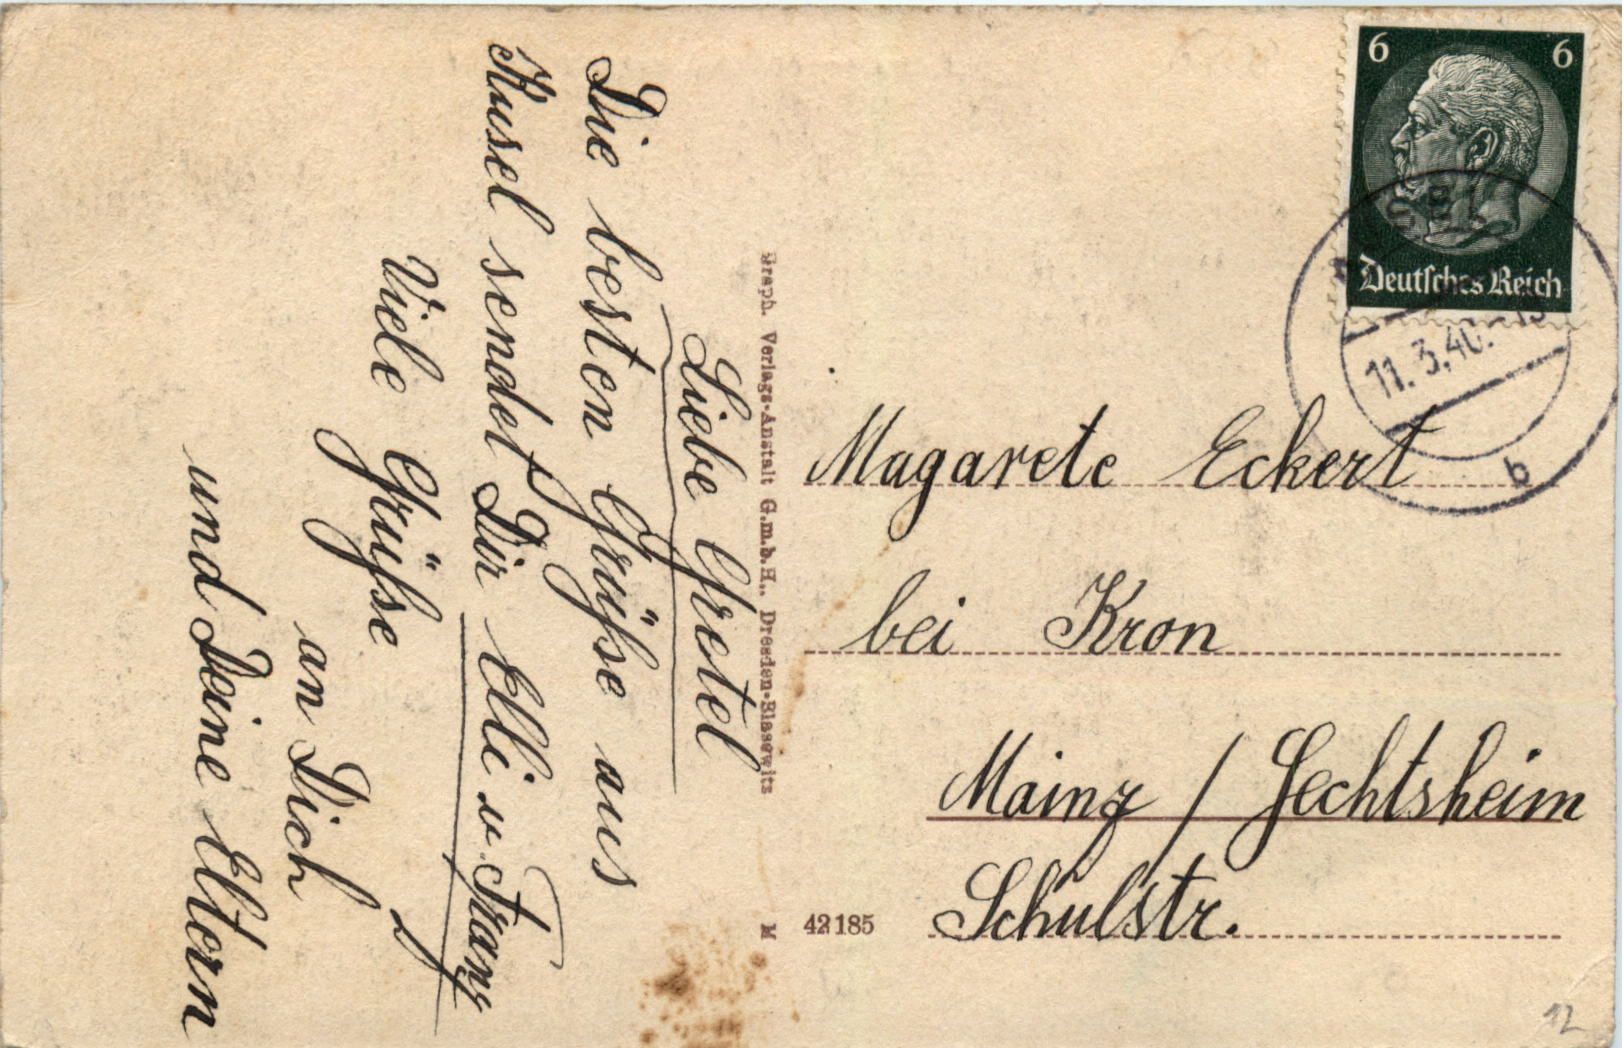 Liebe Gretel
Die besten Grüsse aus
Kusel sendet Dir Elli u. Franz
Viele Grüsse
an Dich
und Deine Eltern
Graph. Verlags-Anstalt G.m.b.H., Dresden-Blasewitz
M
42185
6 6
Deutsches Reich
11.3.40.
b
Magarete Eckert
bei Kron
Mainz / Hechtsheim
Schulstr.
12